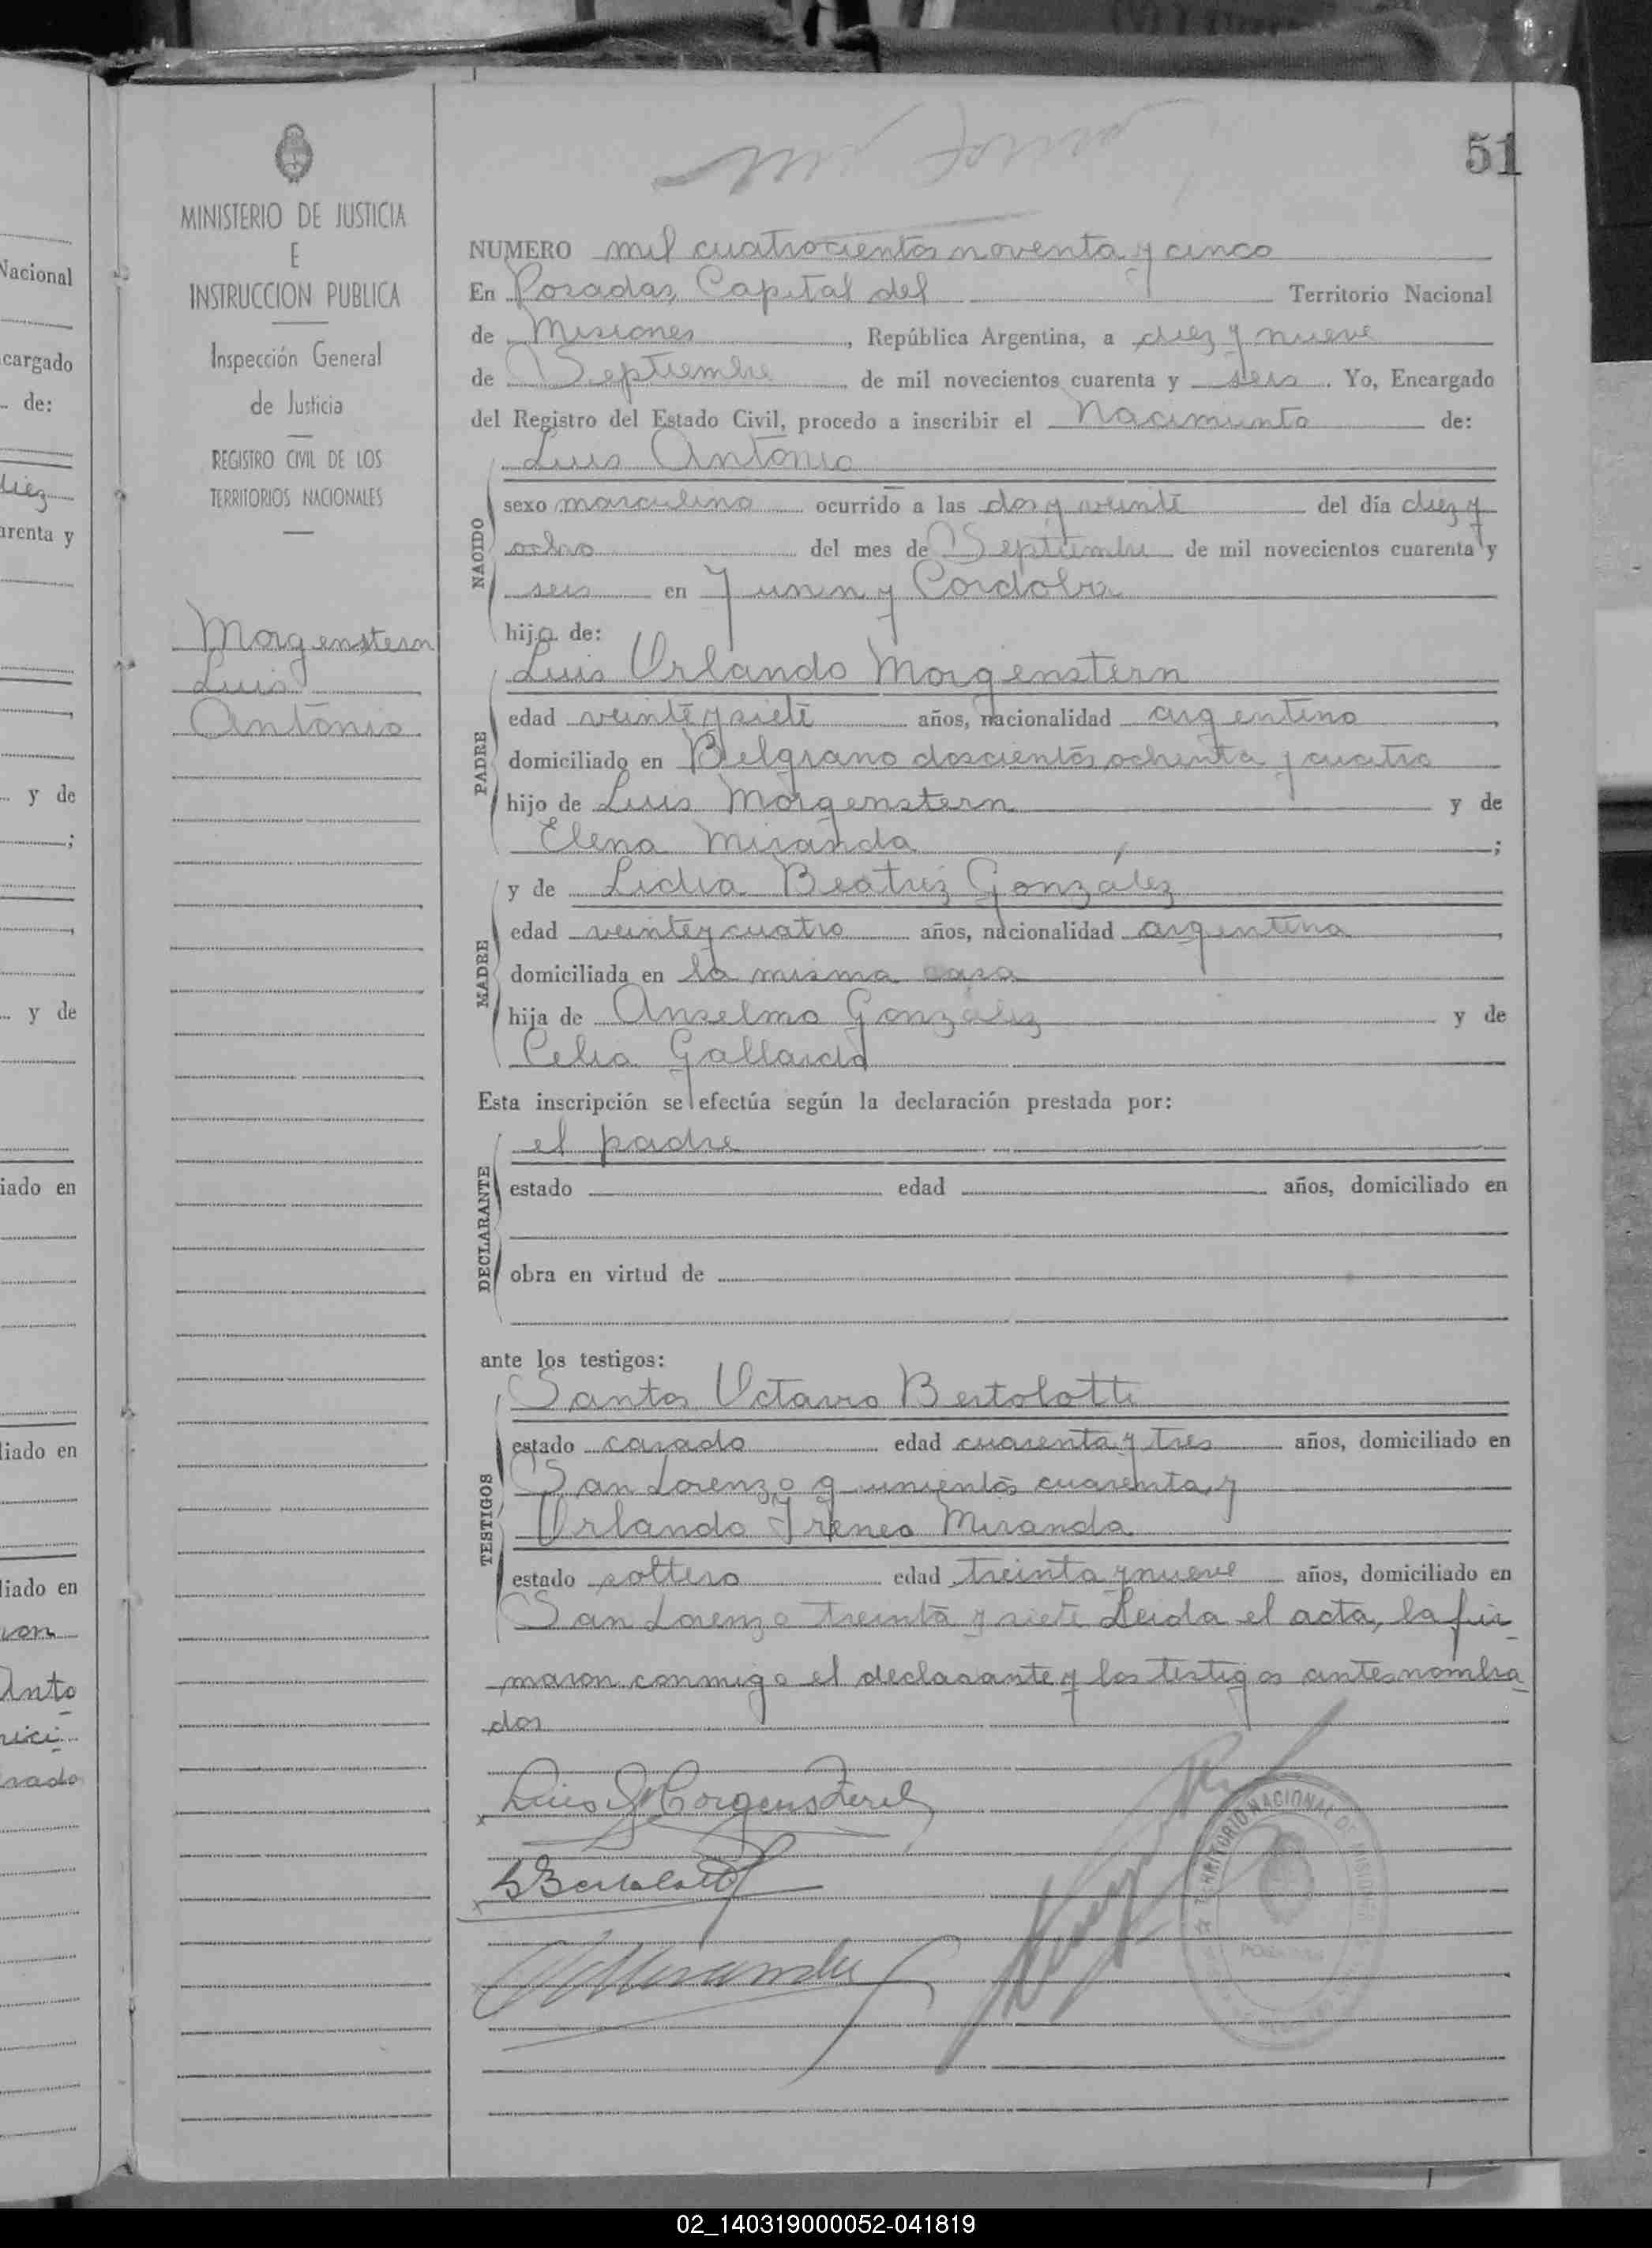 51
MINISTERIO DE JUSTICIA
E
INSTRUCCION PUBLICA
Inspección General
de Justicia
REGISTRO CIVIL DE LOS
TERRITORIOS NACIONALES
Morgenstern
Luis
Antonio
NUMERO mil cuatrocientos noventa y cinco
En Posadas, Capital del Territorio Nacional
de Misiones, República Argentina, a diez y nueve
de Septiembre de mil novecientos cuarenta y seis. Yo, Encargado
del Registro del Estado Civil, procedo a inscribir el Nacimiento de:
Luis Antonio
NACIDO
sexo masculino ocurrido a las dos y veinte del día diez y
ocho del mes de Septiembre de mil novecientos cuarenta y
seis en Junin y Cordoba
hijo de:
Luis Orlando Morgenstern
PADRE
edad veinte y siete años, nacionalidad argentino,
domiciliado en Belgrano doscientos ochenta y cuatro
hijo de Luis Morgenstern y de
Elena Miranda;
y de Lidia Beatriz González
MADRE
edad veinte y cuatro años, nacionalidad argentina,
domiciliada en la misma casa
hija de Anselmo González y de
Celia Gallardo
Esta inscripción se efectúa según la declaración prestada por:
el padre
DECLARANTE
estado edad años, domiciliado en
obra en virtud de
ante los testigos:
Santos Octavio Bertolotti
TESTIGOS
estado casado edad cuarenta y tres años, domiciliado en
San Lorenzo quinientos cuarenta, y
Orlando Ireneo Miranda
estado soltero edad treinta y nueve años, domiciliado en
San Lorenzo treinta y siete Leida el acta, la fir
maron conmigo el declarante y los testigos antes nombra
dos
Luis O Morgenstern
S Bertolotti
O Miranda
TERRITORIO NACIONAL DE MISIONES
POSADAS
Nacional
cargado
de:
diez
arenta y
y de
y de
iado en
liado en
liado en
Anto
02_140319000052-041819